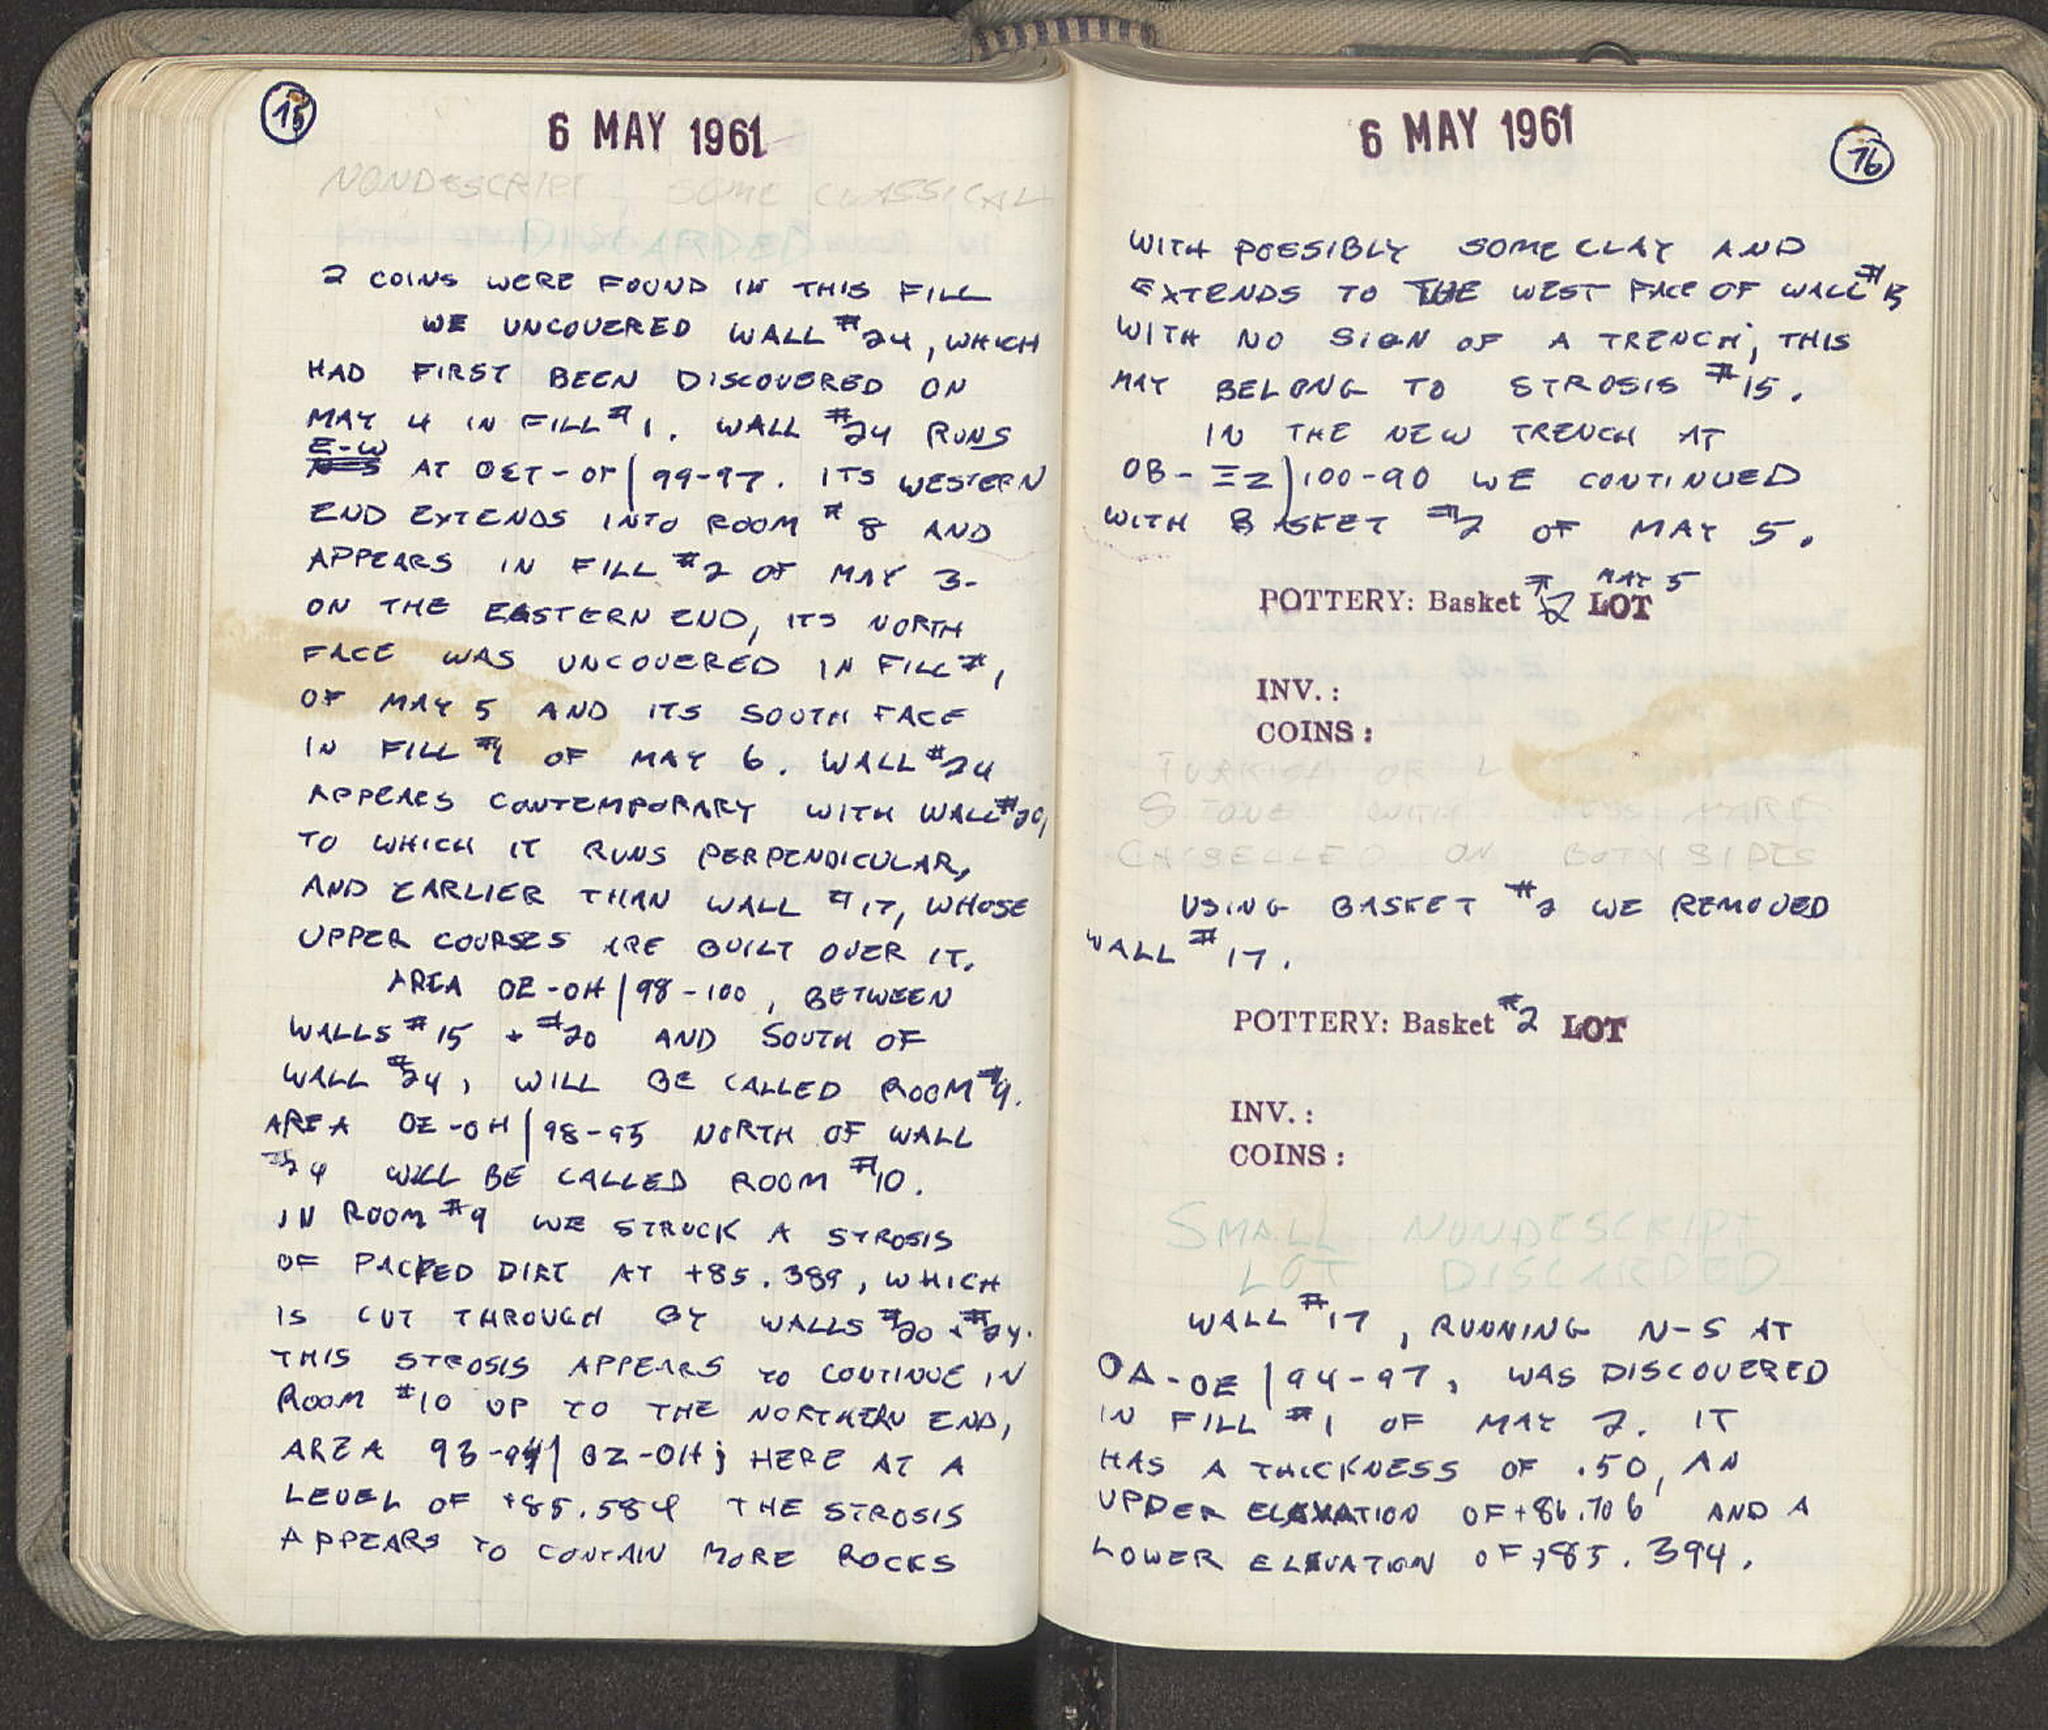 15
6 MAY 1961
NONDESCRIPT, SOME CLASSICAL
DISCARDED
2 COINS WERE FOUND IN THIS FILL
WE UNCOVERED WALL #24, WHICH
HAD FIRST BEEN DISCOVERED ON
MAY 4 IN FILL #1. WALL #24 RUNS
E-W
N-S AT OET-OT | 99-97. ITS WESTERN
END EXTENDS INTO ROOM #8 AND
APPEARS IN FILL #2 OF MAY 3.
ON THE EASTERN END, ITS NORTH
FACE WAS UNCOVERED IN FILL #1
OF MAY 5 AND ITS SOUTH FACE
IN FILL #1 OF MAY 6. WALL #24
APPEARS CONTEMPORARY WITH WALL #20,
TO WHICH IT RUNS PERPENDICULAR,
AND EARLIER THAN WALL #17, WHOSE
UPPER COURSES ARE BUILT OVER IT.
AREA OE-OH | 98-100, BETWEEN
WALLS #15 + #20 AND SOUTH OF
WALL #24, WILL BE CALLED ROOM #9.
AREA OE-OH | 98-95 NORTH OF WALL
#24 WILL BE CALLED ROOM #10.
IN ROOM #9 WE STRUCK A STROSIS
OF PACKED DIRT AT +85.389, WHICH
IS CUT THROUGH BY WALLS #20 + #24.
THIS STROSIS APPEARS TO CONTINUE IN
ROOM #10 UP TO THE NORTHERN END,
AREA 93-94 | OZ-OH; HERE AT A
LEVEL OF +85.584 THE STROSIS
APPEARS TO CONTAIN MORE ROCKS
6 MAY 1961
16
WITH POSSIBLY SOME CLAY AND
EXTENDS TO THE WEST FACE OF WALL #15
WITH NO SIGN OF A TRENCH; THIS
MAY BELONG TO STROSIS #15.
IN THE NEW TRENCH AT
OB-ΞZ | 100-90 WE CONTINUED
WITH BASKET #2 OF MAY 5.
POTTERY: Basket #2 MAY 5 LOT
INV.:
COINS:
TURKISH OR
STONE WITH MARK
CHISELLED ON BOTH SIDES
USING BASKET #2 WE REMOVED
WALL #17.
POTTERY: Basket #2 LOT
INV.:
COINS:
SMALL NONDESCRIPT
LOT DISCARDED
WALL #17, RUNNING N-S AT
OA-OE | 94-97, WAS DISCOVERED
IN FILL #1 OF MAY 2. IT
HAS A THICKNESS OF .50, AN
UPPER ELEVATION OF +86.706 AND A
LOWER ELEVATION OF +85.394.